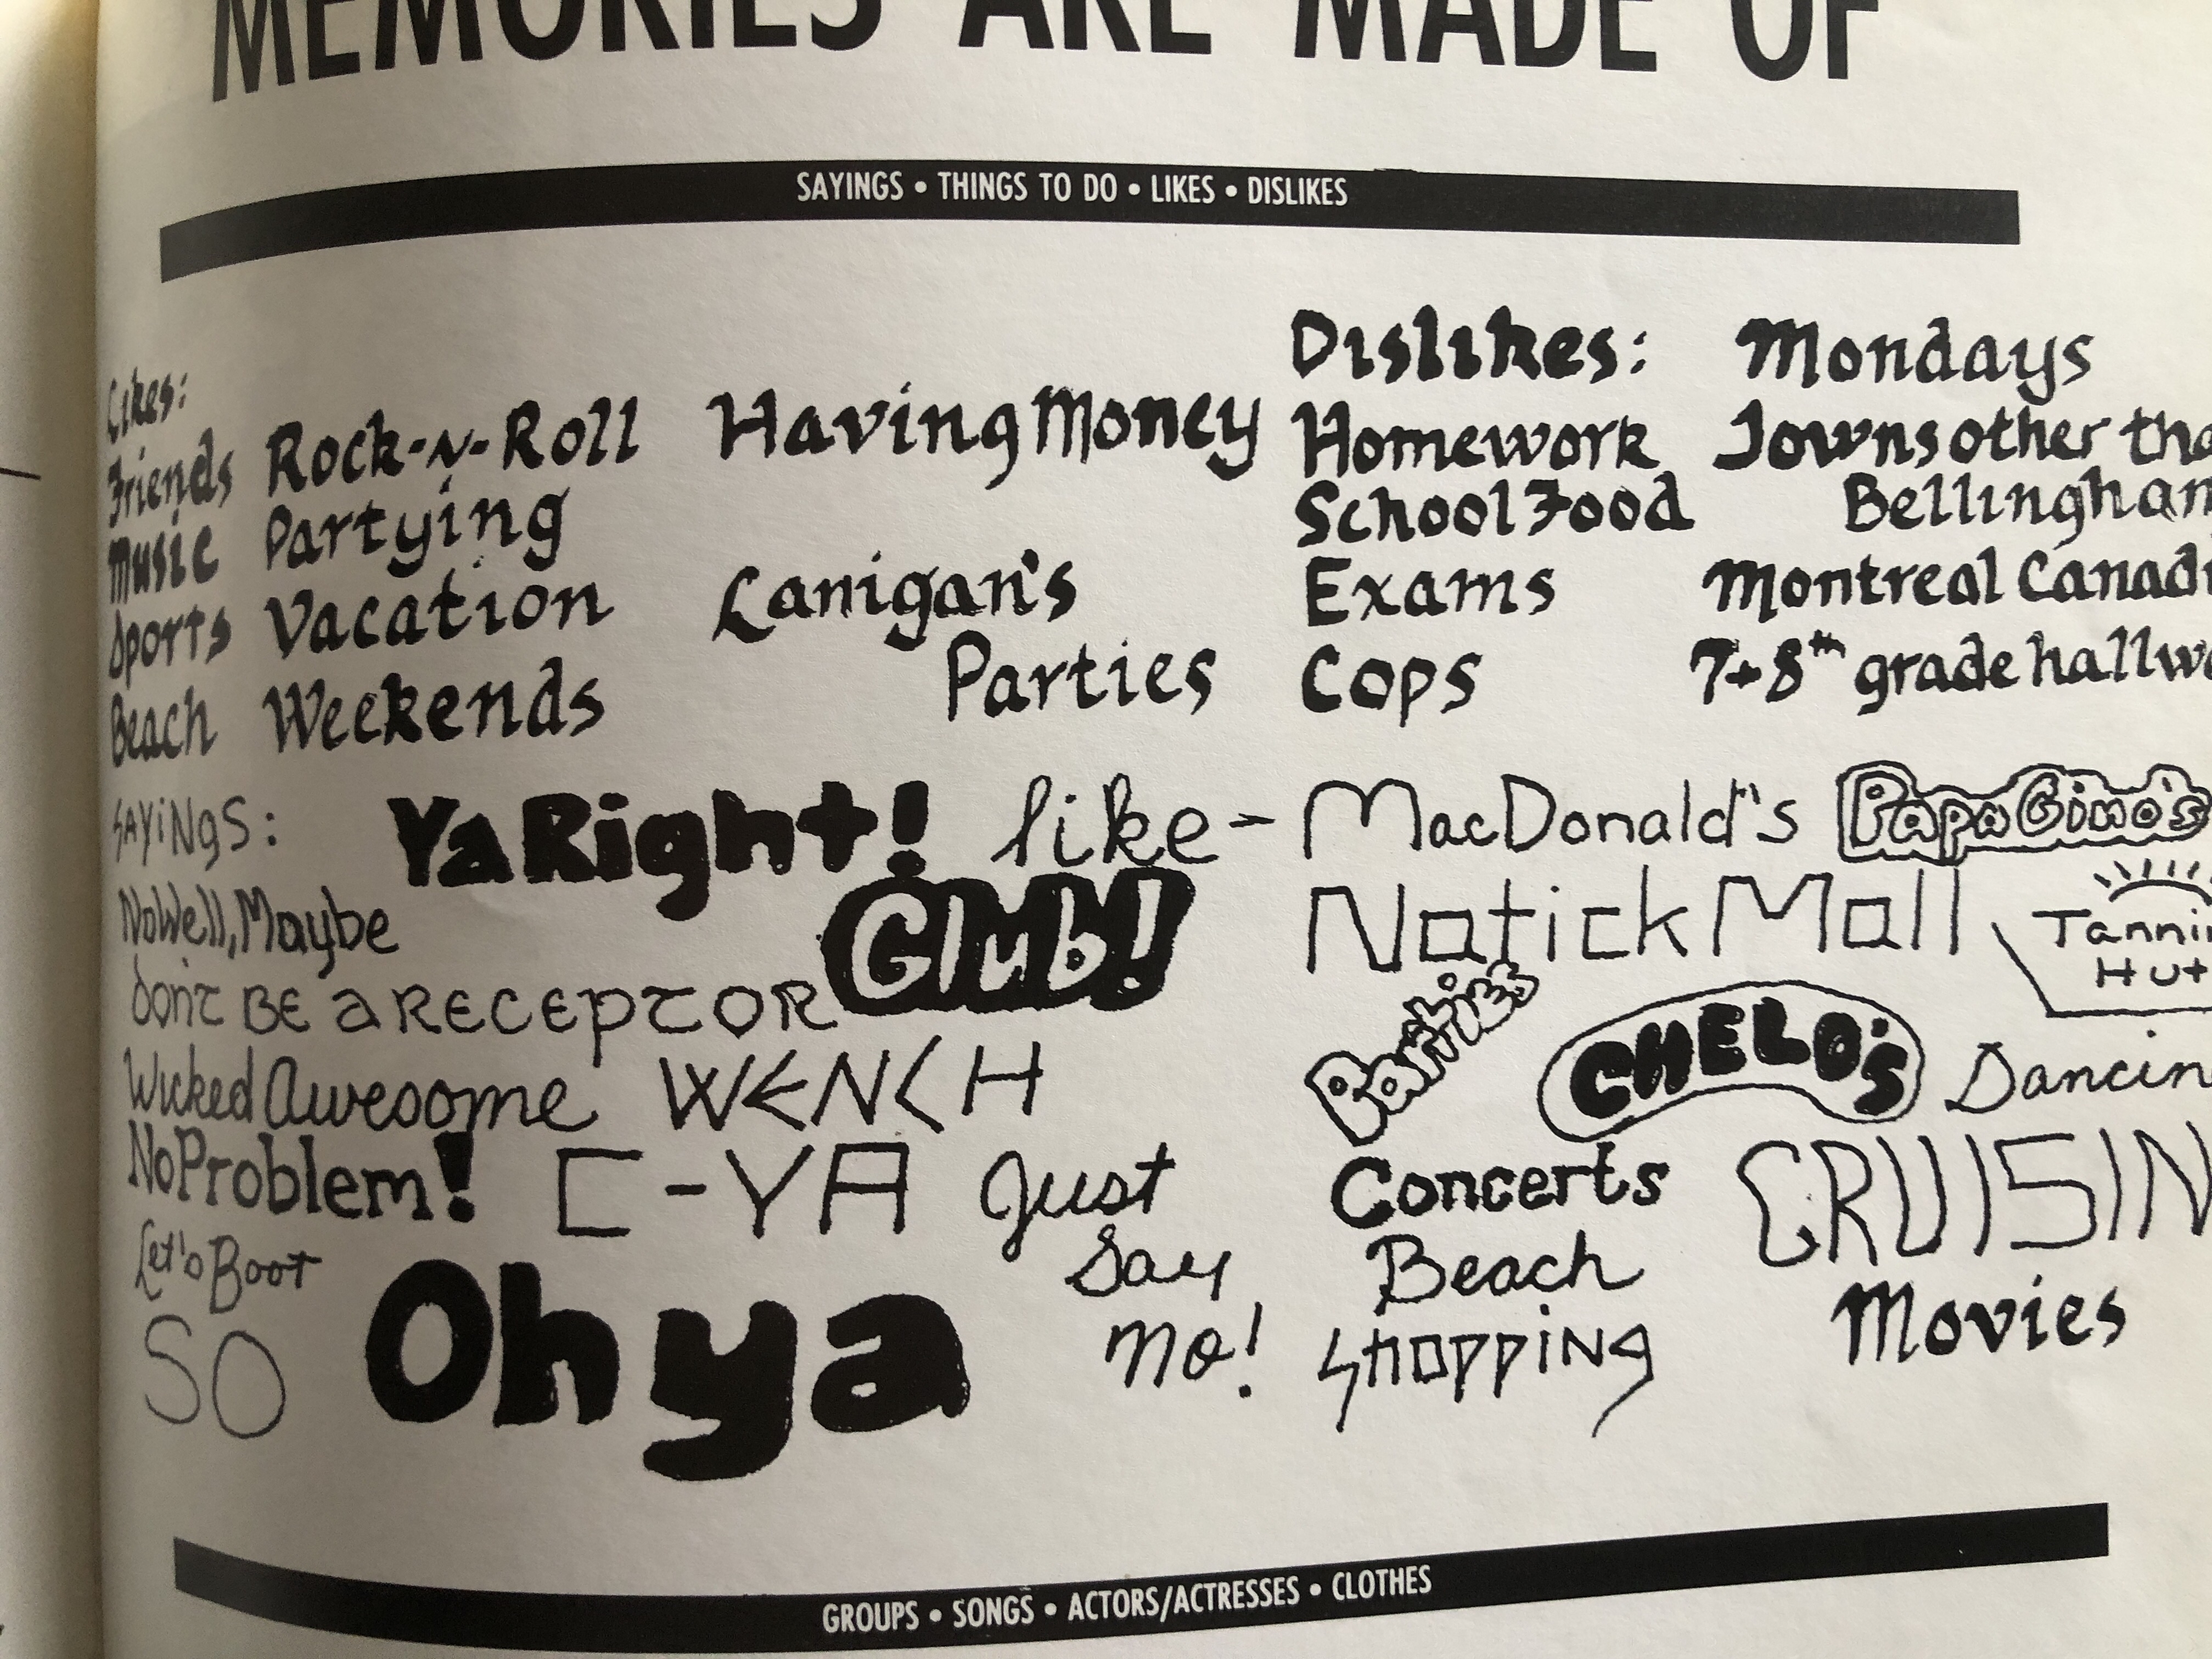 MEMORIES ARE MADE OF
SAYINGS • THINGS TO DO • LIKES • DISLIKES
Likes:
Friends Rock-n-Roll Having Money
Music Partying
Sports Vacation Lanigan's
Beach Weekends Parties
Dislikes: Mondays
Homework Towns other
School Food
Exams Montreal
Cops 7+8th grade
SAYiNgS: Ya Right! like- MacDonald's Papa Gino's
No Well, Maybe Club! Natick Mall
Hut
don't BE a RECEPTOR Parties CHELO'S
Wicked Awesome WENCH
No Problem! C-YA Just Concerts
Let's Boot Say Beach
SO Oh ya no! SHOPPiNg Movies
GROUPS • SONGS • ACTORS/ACTRESSES • CLOTHES